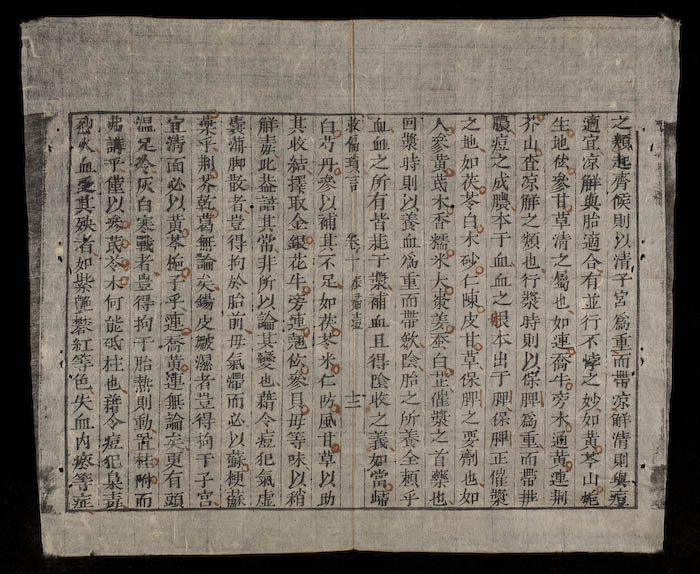 之類起齊候則以清子宮為重而帶凉解清則與痘
適宜凉解與胎適合有並行不悖之妙如黃芩山梔
生地伏參甘草清之屬也如連喬牛旁木通黃連荆
芥山查凉解之類也行漿時則以保胛為重而帶排
膿痘之成膿本于血血之根本出于胛保胛正催漿
之地如茯苓白木砂仁陳皮甘草保胛之要劑也如
人參黃芪木香糯米大棗姜白芷催漿之首藥也
回漿時則以養血為重而帶斂陰胎之所養全頼乎
血血之所有皆耗于漿補血且得陰收之義如當歸
救偏瑣言 卷十 十二
白芍丹參以補其不足如茯苓米仁防風甘草以助
其收結擇取金銀花牛旁連翹伏參貝母等味以稍
解毒此葢諳其常非所以論其變也藉令痘犯氣虛
囊薄脚散者豈得拘於胎前毋氣滯而必以蘇梗蘇
葉乎荆芥乾葛無論矣錫皮皺濕者豈得拘于子宮
宜清而必以黃芩梔子乎連喬黃連無論矣更有頭
溫足冷灰白寒戰者豈得拘于胎熱則動置桂附而
弗講乎僅以參芪苓木何能砥柱也藉令痘犯梟毒
烈火血受其殃者如紫艷礬紅等色失血内瘀等症